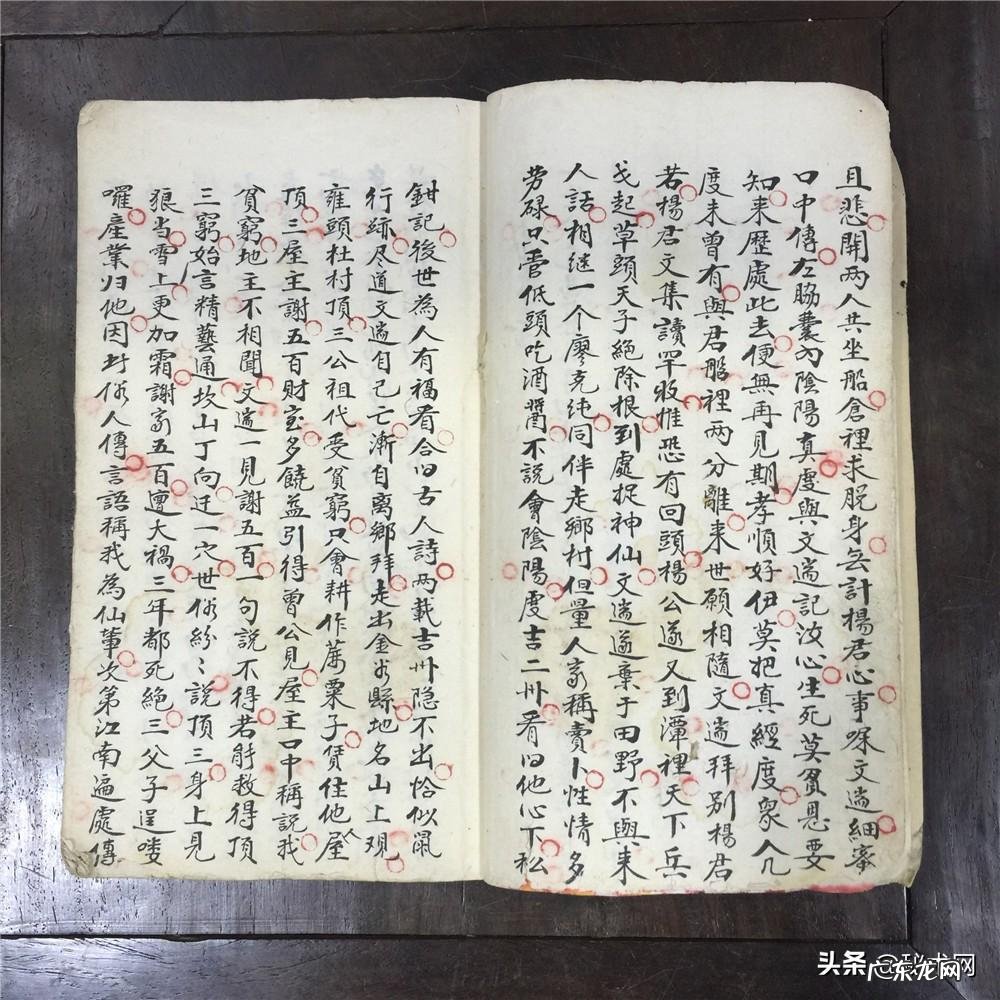 且悲開两人共坐船倉裡求脱身無計楊君心事㗖文遄細宻
口中傳左脇囊内陰陽真度與文遄記汝心生死莫負恩要
知来歷處此去便無再見期孝順好伊莫把真經度衆人几
度未曾有與君船裡两分離来世願相隨文遄拜别楊君
若楊君文集讀罕收惟恐有回頭楊公遂又到潭裡天下兵
戈起草頭天子絕除根到處捉神仙文遄遂棄于田野不與来
人話相继一个廖克纯同伴走鄉村但量人家稱賣卜性情多
劳碌只管低頭吃酒醬不説會陰陽度吉二卅看旧他心下松
鉗記後世為人有福看合旧古人詩两載吉卅隐不出恰似鼠
行跡尽道文遄自己亡漸自离鄉拜走出金水縣地名山上观
雍頭杜村頂三公祖代受貧窮只會耕作蔴粟子賃住他屋
頂三屋主謝五百財宝多饒益引得曾公見屋王口中稱説我
貧窮地主不相聞文遄一見謝五百一句説不得若能救得頂
三窮始言精藝通坎山丁向迁一穴世俗紛〻説頂三身上見
狼当雪上更加霜謝家五百遭大禍三年都死絕三父子逞喽
囉産業归他因圩俗人傳言語稱我為仙輩次第江南遍處傳
头条@秘术网
广东龙网